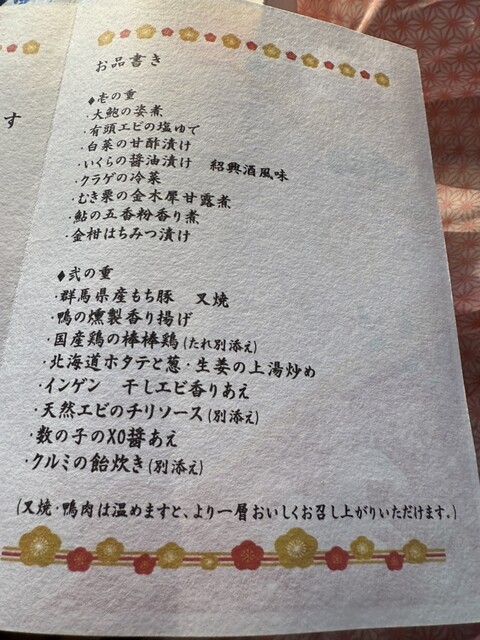 す
お品書き
◆壱の重
・大鮑の姿煮
・有頭エビの塩ゆで
・白菜の甘酢漬け
・いくらの醤油漬け　紹興酒風味
・クラゲの冷菜
・むき栗の金木犀甘露煮
・鮎の五香粉香り煮
・金柑はちみつ漬け
◆弐の重
・群馬県産もち豚　叉焼
・鴨の燻製香り揚げ
・国産鶏の棒棒鶏(たれ別添え)
・北海道ホタテと葱・生姜の上湯炒め
・インゲン　干しエビ香りあえ
・天然エビのチリソース(別添え)
・数の子のXO醤あえ
・クルミの飴炊き(別添え)
(叉焼・鴨肉は温めますと、より一層おいしくお召し上がりいただけます。)